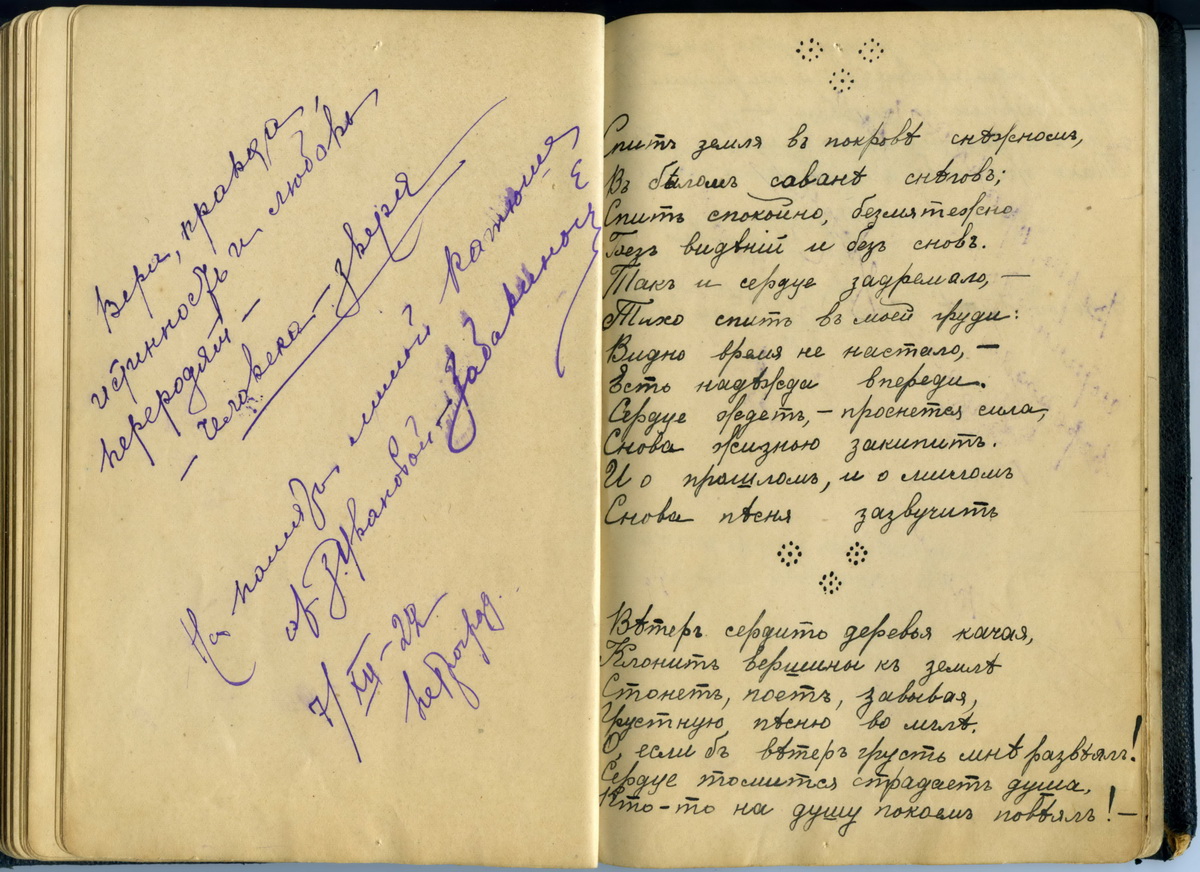 Вера, правда,
истинность и любовь
переродят –
– человека – зверя
На память милой Катюше
от З. Украновой-
7/XII – 22
Петроград.
Спитъ земля въ покровѣ снѣжномъ,
Въ бѣломъ саванѣ снѣговъ;
Спитъ спокойно, безмятежно
Безъ видѣній и безъ сновъ.
Такъ и сердце задремало, –
Тихо спитъ въ моей груди:
Видно время не настало, –
Есть надѣжда впереди.
Сердце ждетъ, – проснется сила,
Снова жизнью закипитъ.
И о прошломъ, и о миломъ
Снова пѣсня зазвучитъ
Вѣтеръ сердито деревья качая,
Клонитъ вершины къ землѣ
Стонетъ, поетъ, завывая,
Грустную пѣсню во мглѣ.
О, если бъ вѣтеръ грусть мнѣ развѣялъ!
Сердце томится страдаетъ душа,
Кто-то на душу покоемъ повѣялъ! –